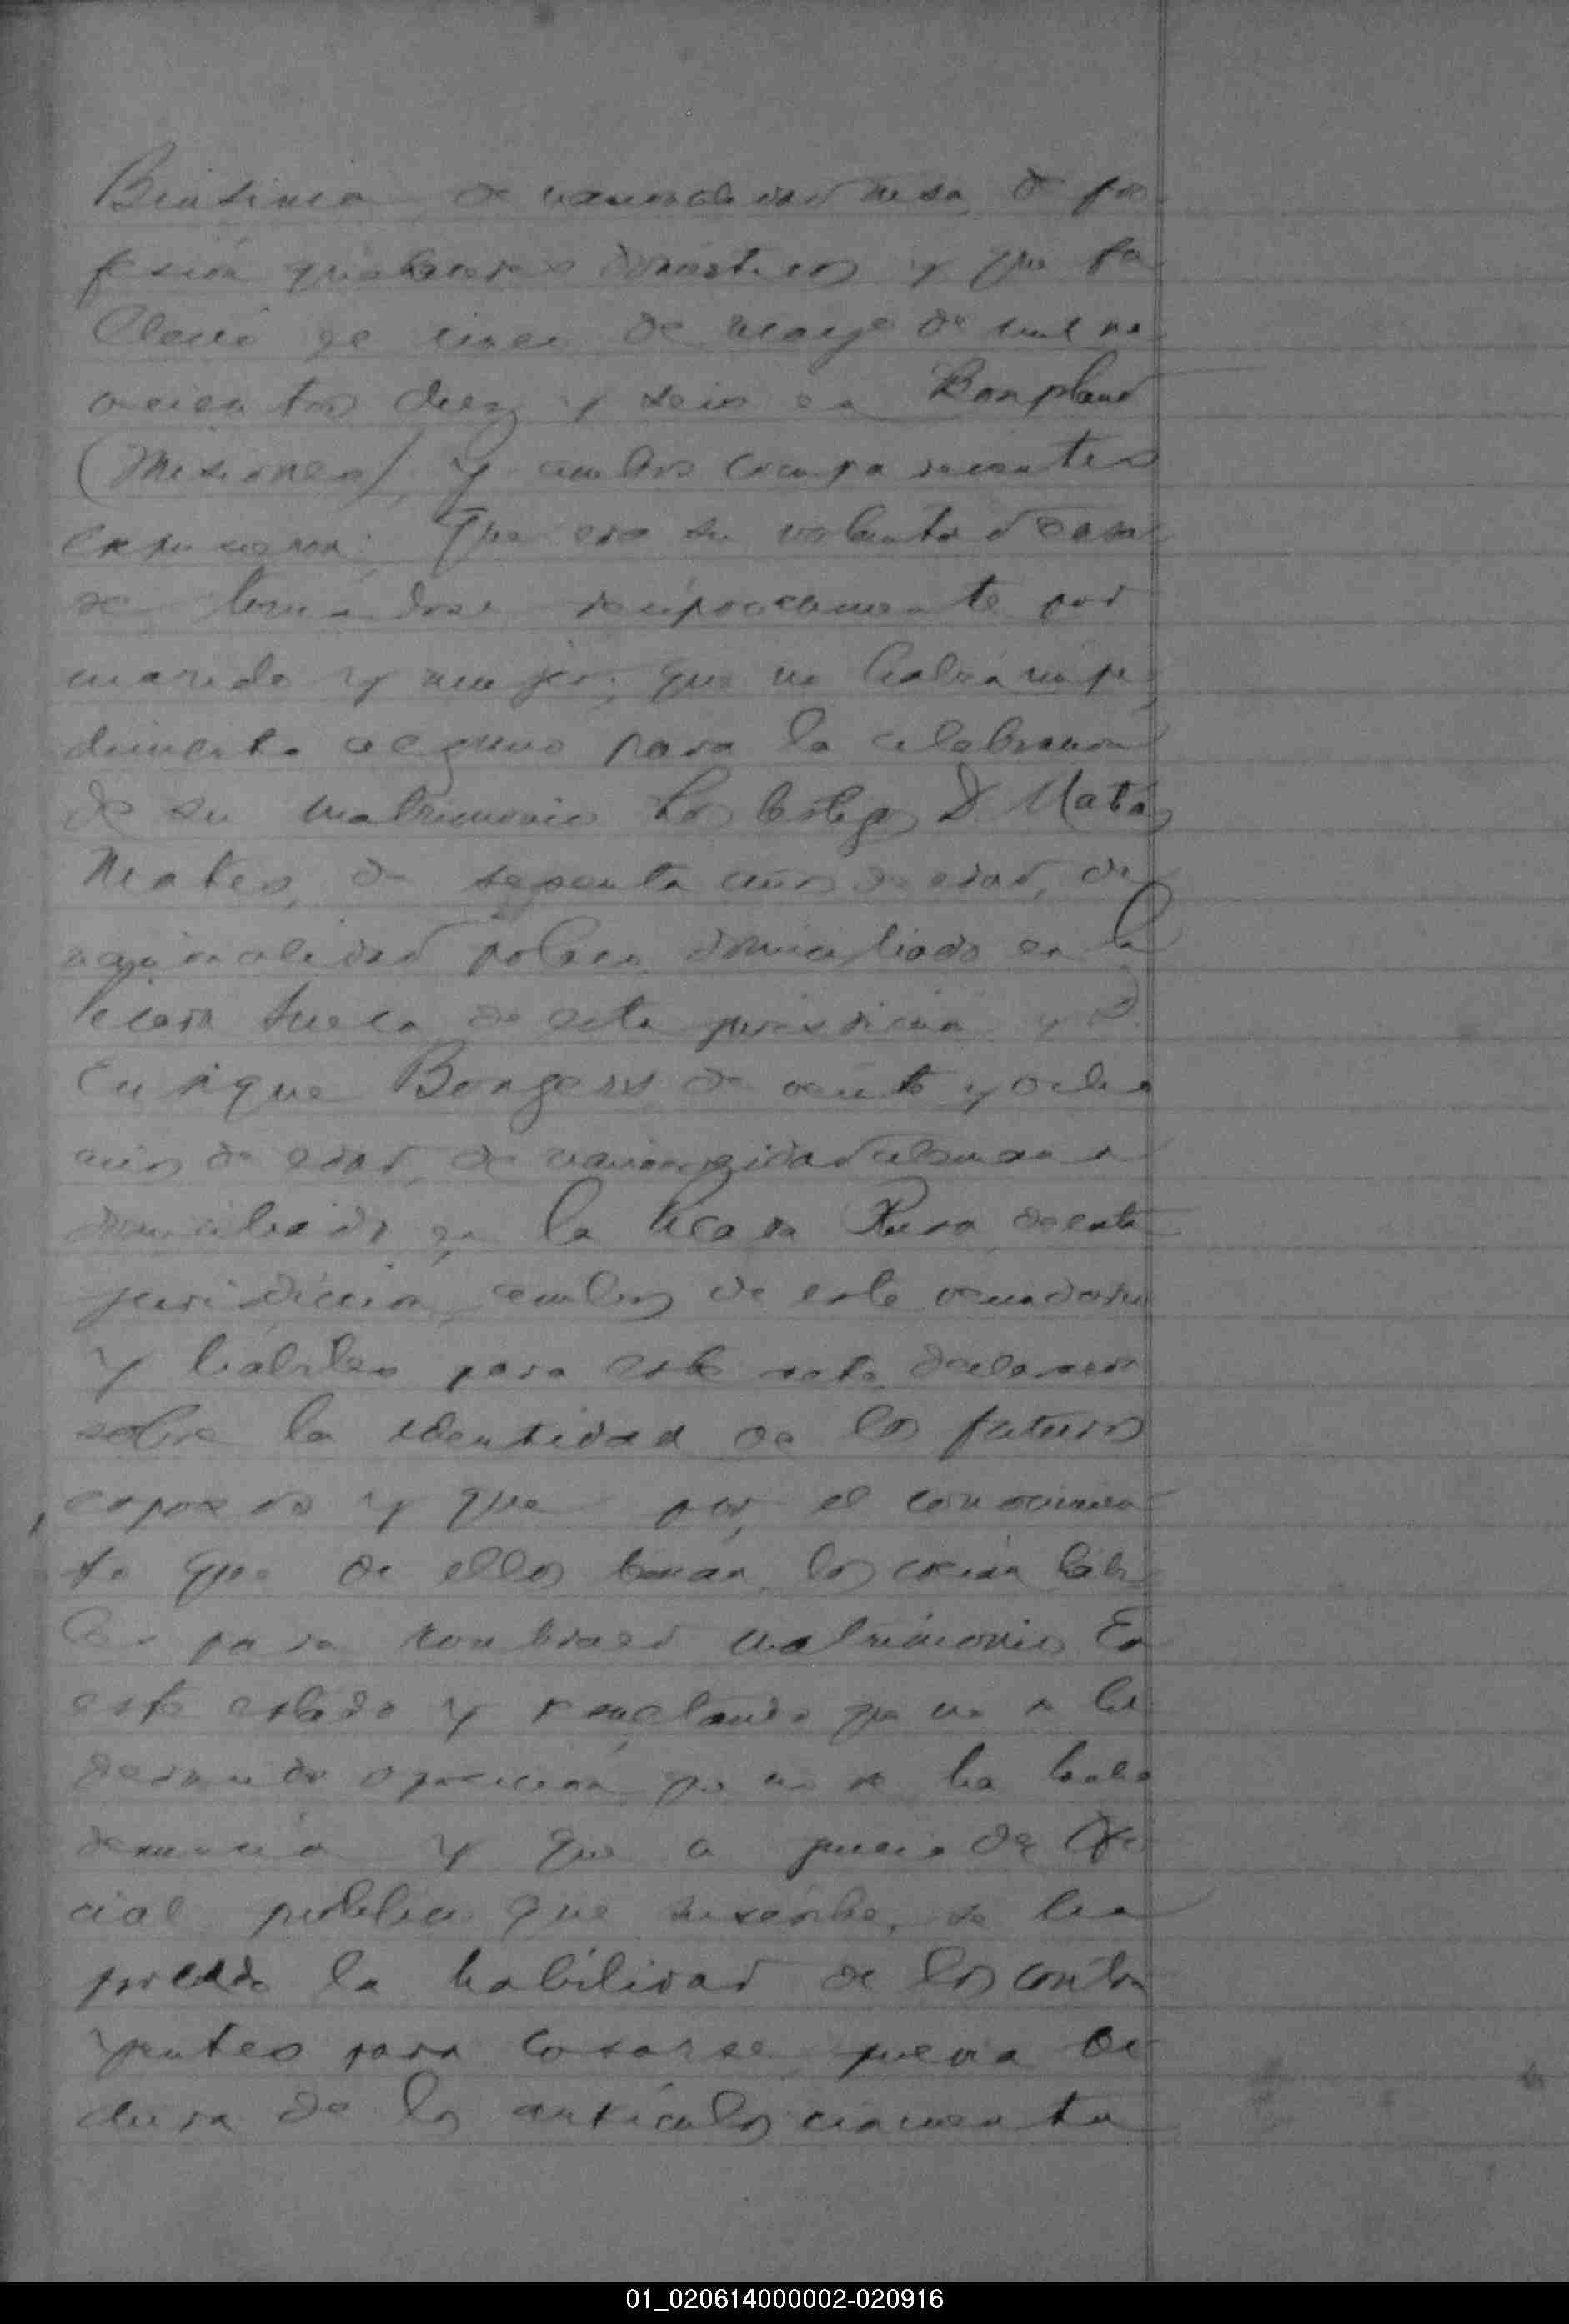 de nacionalidad rusa, de pro
fesión quehaceres domésticos y que fa
lleció el cinco de mayo de mil no
vecientos diez y seis en Bonpland
(Misiones) Y ambos comparecientes
expusieron: Que era su voluntad casar
se tomándose recíprocamente por
marido y mujer; que no había impe
dimento alguno para la celebración
de su matrimonio Los testigos D.
de años de edad, de
nacionalidad polaca domiciliado en la
Picada Sueca de esta jurisdicción y D.
Enrique Bongers de veinte y ocho
años de edad, de nacionalidad alemana
domiciliado en la Picada Rusa de esta
jurisdicción, ambos de este vecindario
y hábiles para este acto, declararon
sobre la identidad de los futuros
esposos y que por el conocimien
to que de ellos tenían, los creían hábi
les para contraer matrimonio En
este estado y resultando que no se ha
deducido oposición que no se ha hecho
denuncia y que a juicio del Ofi
cial público que suscribe, se ha
probado la habilidad de los contra
yentes para casarse, previa lec
tura de los artículos cincuenta
01_020614000002-020916